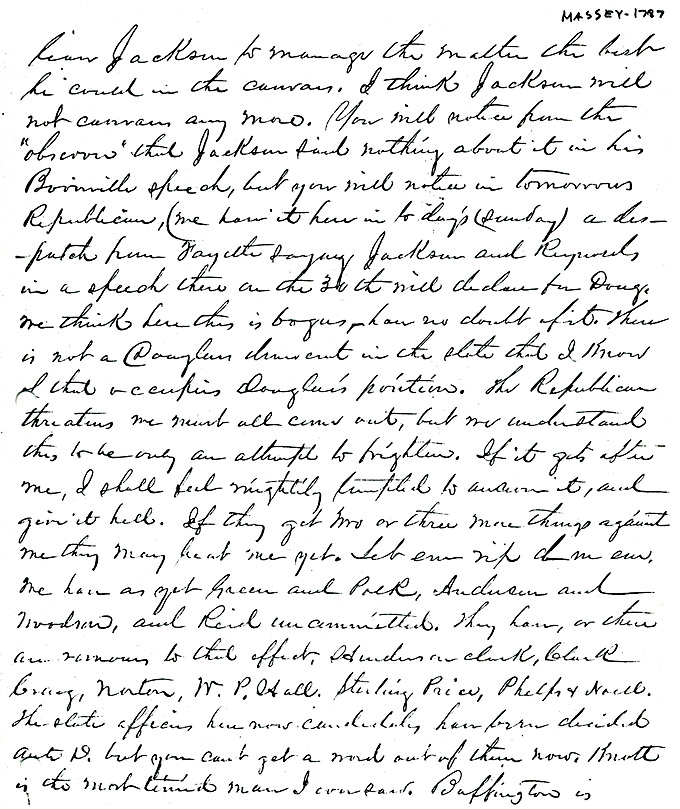 MASSEY-1787
Jackson to manage the matter the best
he could in the canvass. I think Jackson will
not canvass any more. You will notice from the
"observer" that Jackson said nothing about it in his
Boonville speech, but you will notice in tomorrows
Republican, (we have it here in to day's (Sunday) a des-
-patch from Fayette saying Jackson and Reynolds
in a speech there on the 30th will declare for Doug.
we think here this is bogus, have no doubt of it. There
is not a Douglas democrat in the state that I know
of that occupies Douglas's position. The Republican
threatens we must all come out, but we understand
this to be only an attempt to frighten. If it gets after
me, I shall feel mightily tempted to answer it, and
give it hell. If they get two or three more things against
me they may beat me yet. Let em rip d—m em.
We have as yet Green and Polk, Anderson and
Woodson, and Reid uncommitted. They have, or there
are rumours to that effect, Henderson clark, Clark
Craig, Norton, W. P. Hall. Sterling Price, Phelps & Noell.
The state officers here now candidates have been decided
ante D. but you can't get a word out of them now. Knott
is the most timid man I ever saw. Buffington is